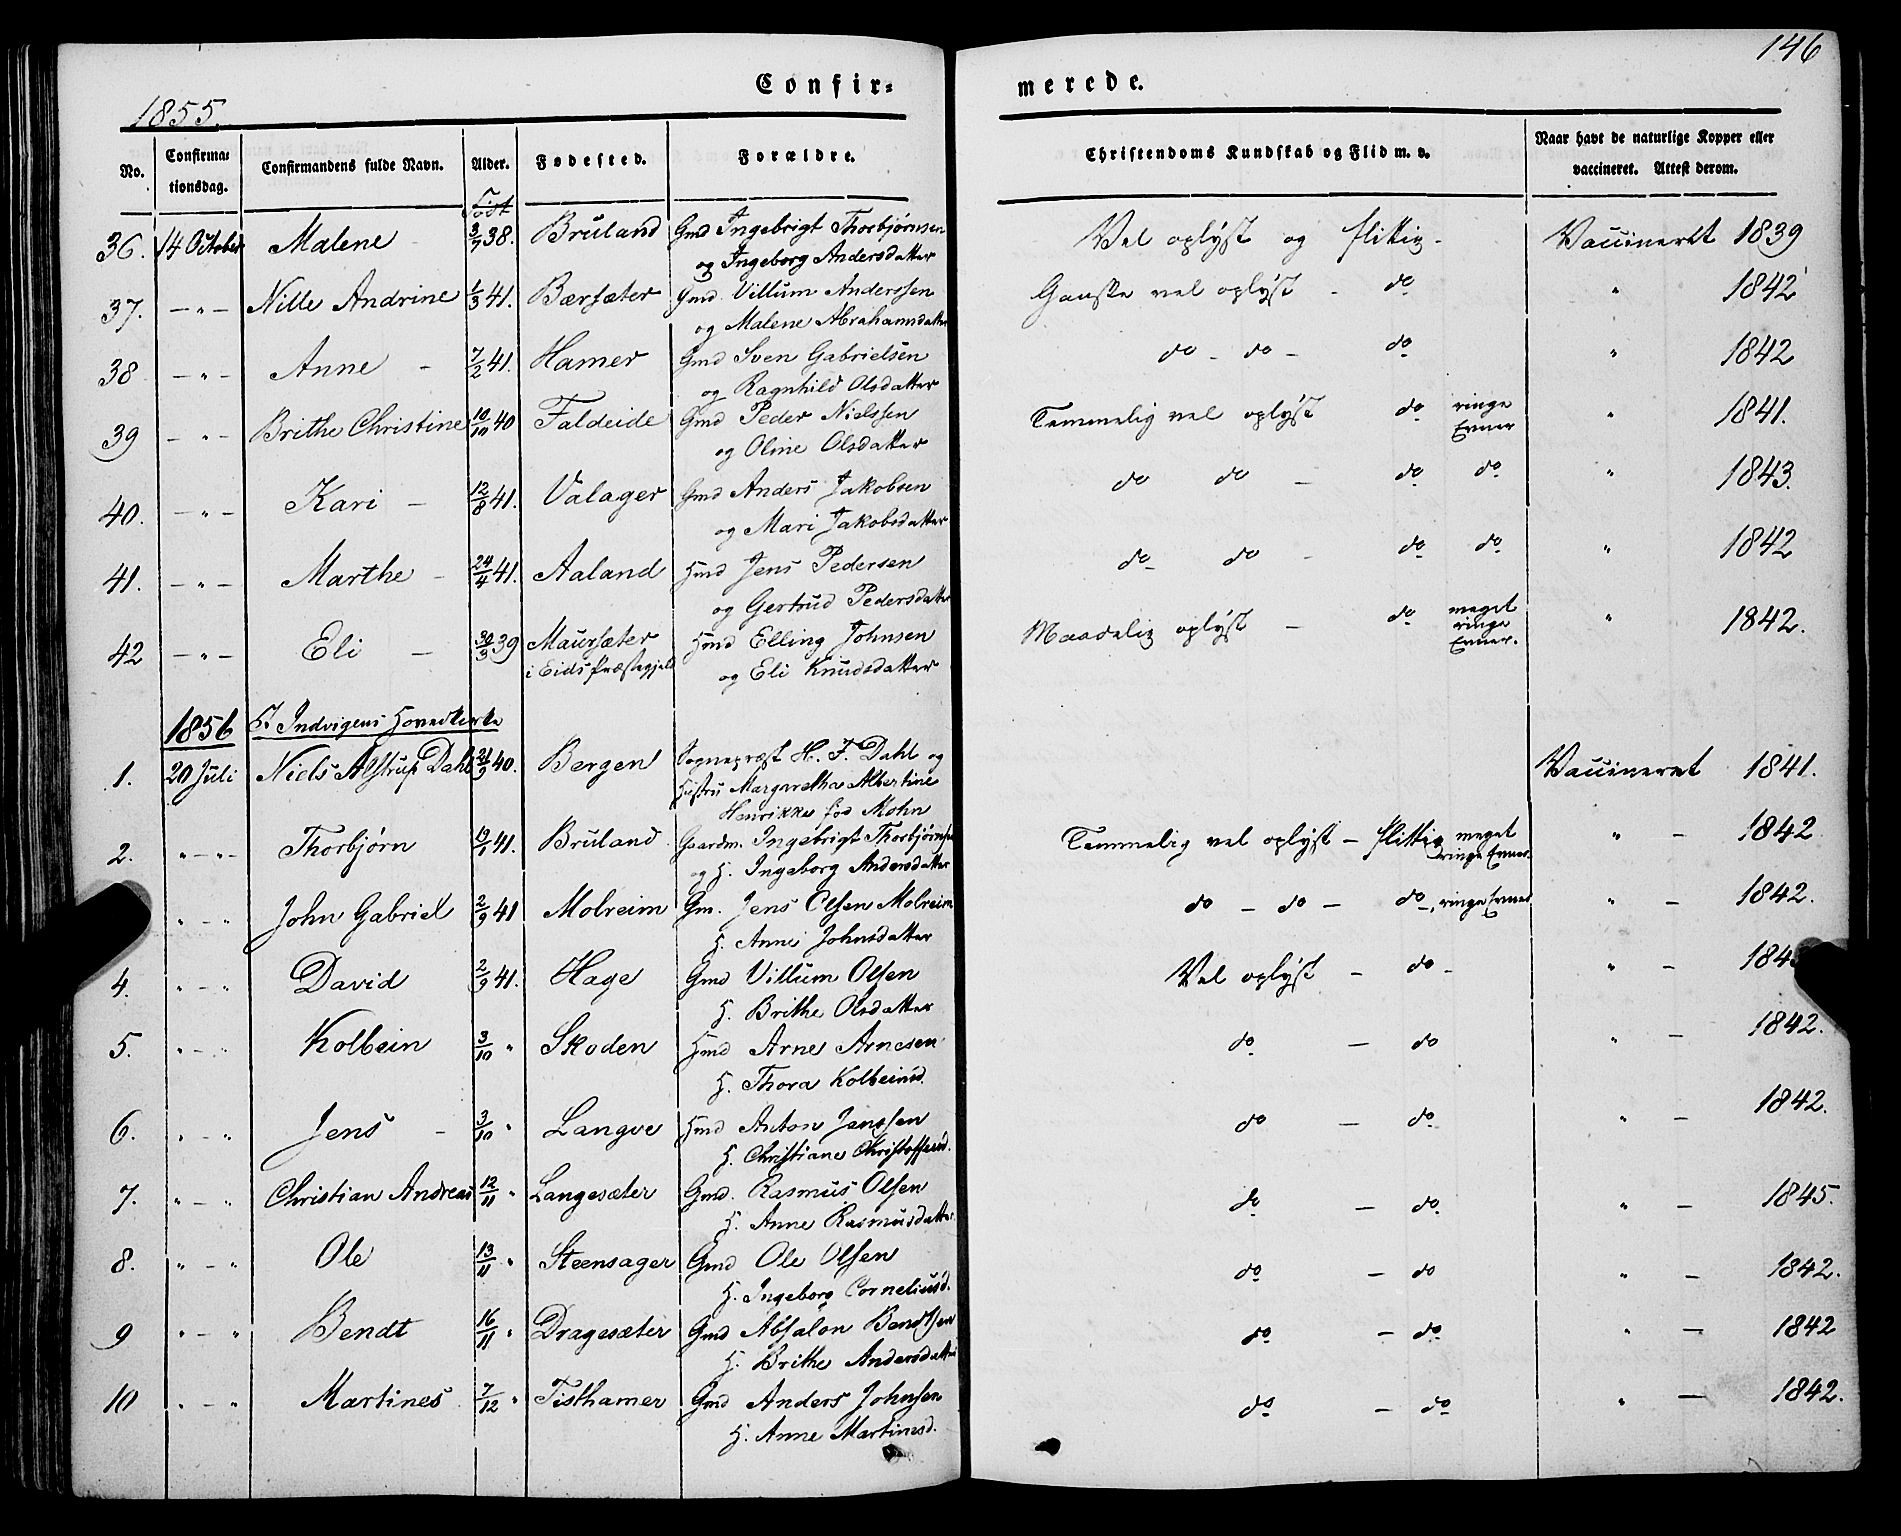 146
Confir= merede.
1855.
No. Confirma= tionsdag. Confirmandens fulde Navn. Alder. Fødested. Forældre. Christendoms Kundskab og Flid m. v. Naar havt de naturlige Kopper eller vaccineret. Attest derom.
Født
36. 14 October Malene 3/7 38. Bruland Gmd Ingebrigt Thorbjørnsen Vel oplyst og flittig. Vaccineret 1839
og Ingeborg Andersdatter
37. — " — Nille Andrine 1/3 41. Bærsæter Gmd. Villum Anderssen Ganske vel oplyst - do " 1842
og Malene Abrahamsdatter
38 — " — Anne - 7/2 41. Hamer Gmd Sven Gabrielsen do - do - do " 1842
og Ragnhild Olsdatter
39 — " — Brithe Christine 10/10 40 Faldeide Gmd Peder Nielssen Temmelig vel oplyst do ringe Evner " 1841.
og Oline Olsdatter
40. — " — Kari - 12/8 41. Valager Gmd Anders Jakobsen do do - do do " 1843.
og Mari Jakobsdatter
41. — " — Marthe - 24/4 41. Aaland Hmd Jens Pedersen do do - do do " 1842
og Gertrud Pedersdatter
42 — " — Eli - 30/3 39 Maursæter Hmd Elling Johnsen Maadelig oplyst - do meget ringe Evner. " 1842.
i Eids Præstegjeld og Eli Knudsdatter
1856 I Indvigens Hovedkirke
1. 20 Juli Niels Alstrup Dahl 21/9 40. Bergen Sognepræst H. F. Dahl og Vaccineret 1841.
Hustru Margaretha Albertine
Henrikke fød Mohn
2. " — " Thorbjørn 19/1 41. Bruland Gaardm. Ingebrigt Thorbjørnsen Temmelig vel oplyst — flittig meget ringe Evner. " — 1842
og H. Ingeborg Andersdatter
" — " John Gabriel 2/9 41 Molreim Gm. Jens Olsen Molreim do — do — do, ringe Evner " — 1842.
H. Anne Johnsdatter
4. " — " David 2/9 41. Hage Gmd Villum Olsen Vel oplyst — do - " — 184
H. Brithe Olsdatter
5. " — " Kolbein 3/10 " Skoden Hmd Arne Arnesen do — do " — 1842.
H. Thora Kolbeinsd.
6. " — " Jens - 3/10 " Langve Hmd Anton Jenssen do — do. " — 1842.
H. Christiane Christoffersd.
7. " — " Christian Andreas 12/11 " Langesæter Gmd. Rasmus Olsen do — do. " — 1845.
H. Anne Rasmusdatter
8. " — " Ole 13/11 " Steensager Gmd Ole Olsen do — do " — 1842.
H. Ingeborg Corneliusd.
9 " — " Bendt 16/11 " Dragesæter Gmd Absalon Bendtsen do — do " — 1842
H. Brithe Andersdatter
10 " — " Martines 7/12 " Tisthamer Gmd Anders Johnsen do — do " — 1842.
H. Anne Martinesd.